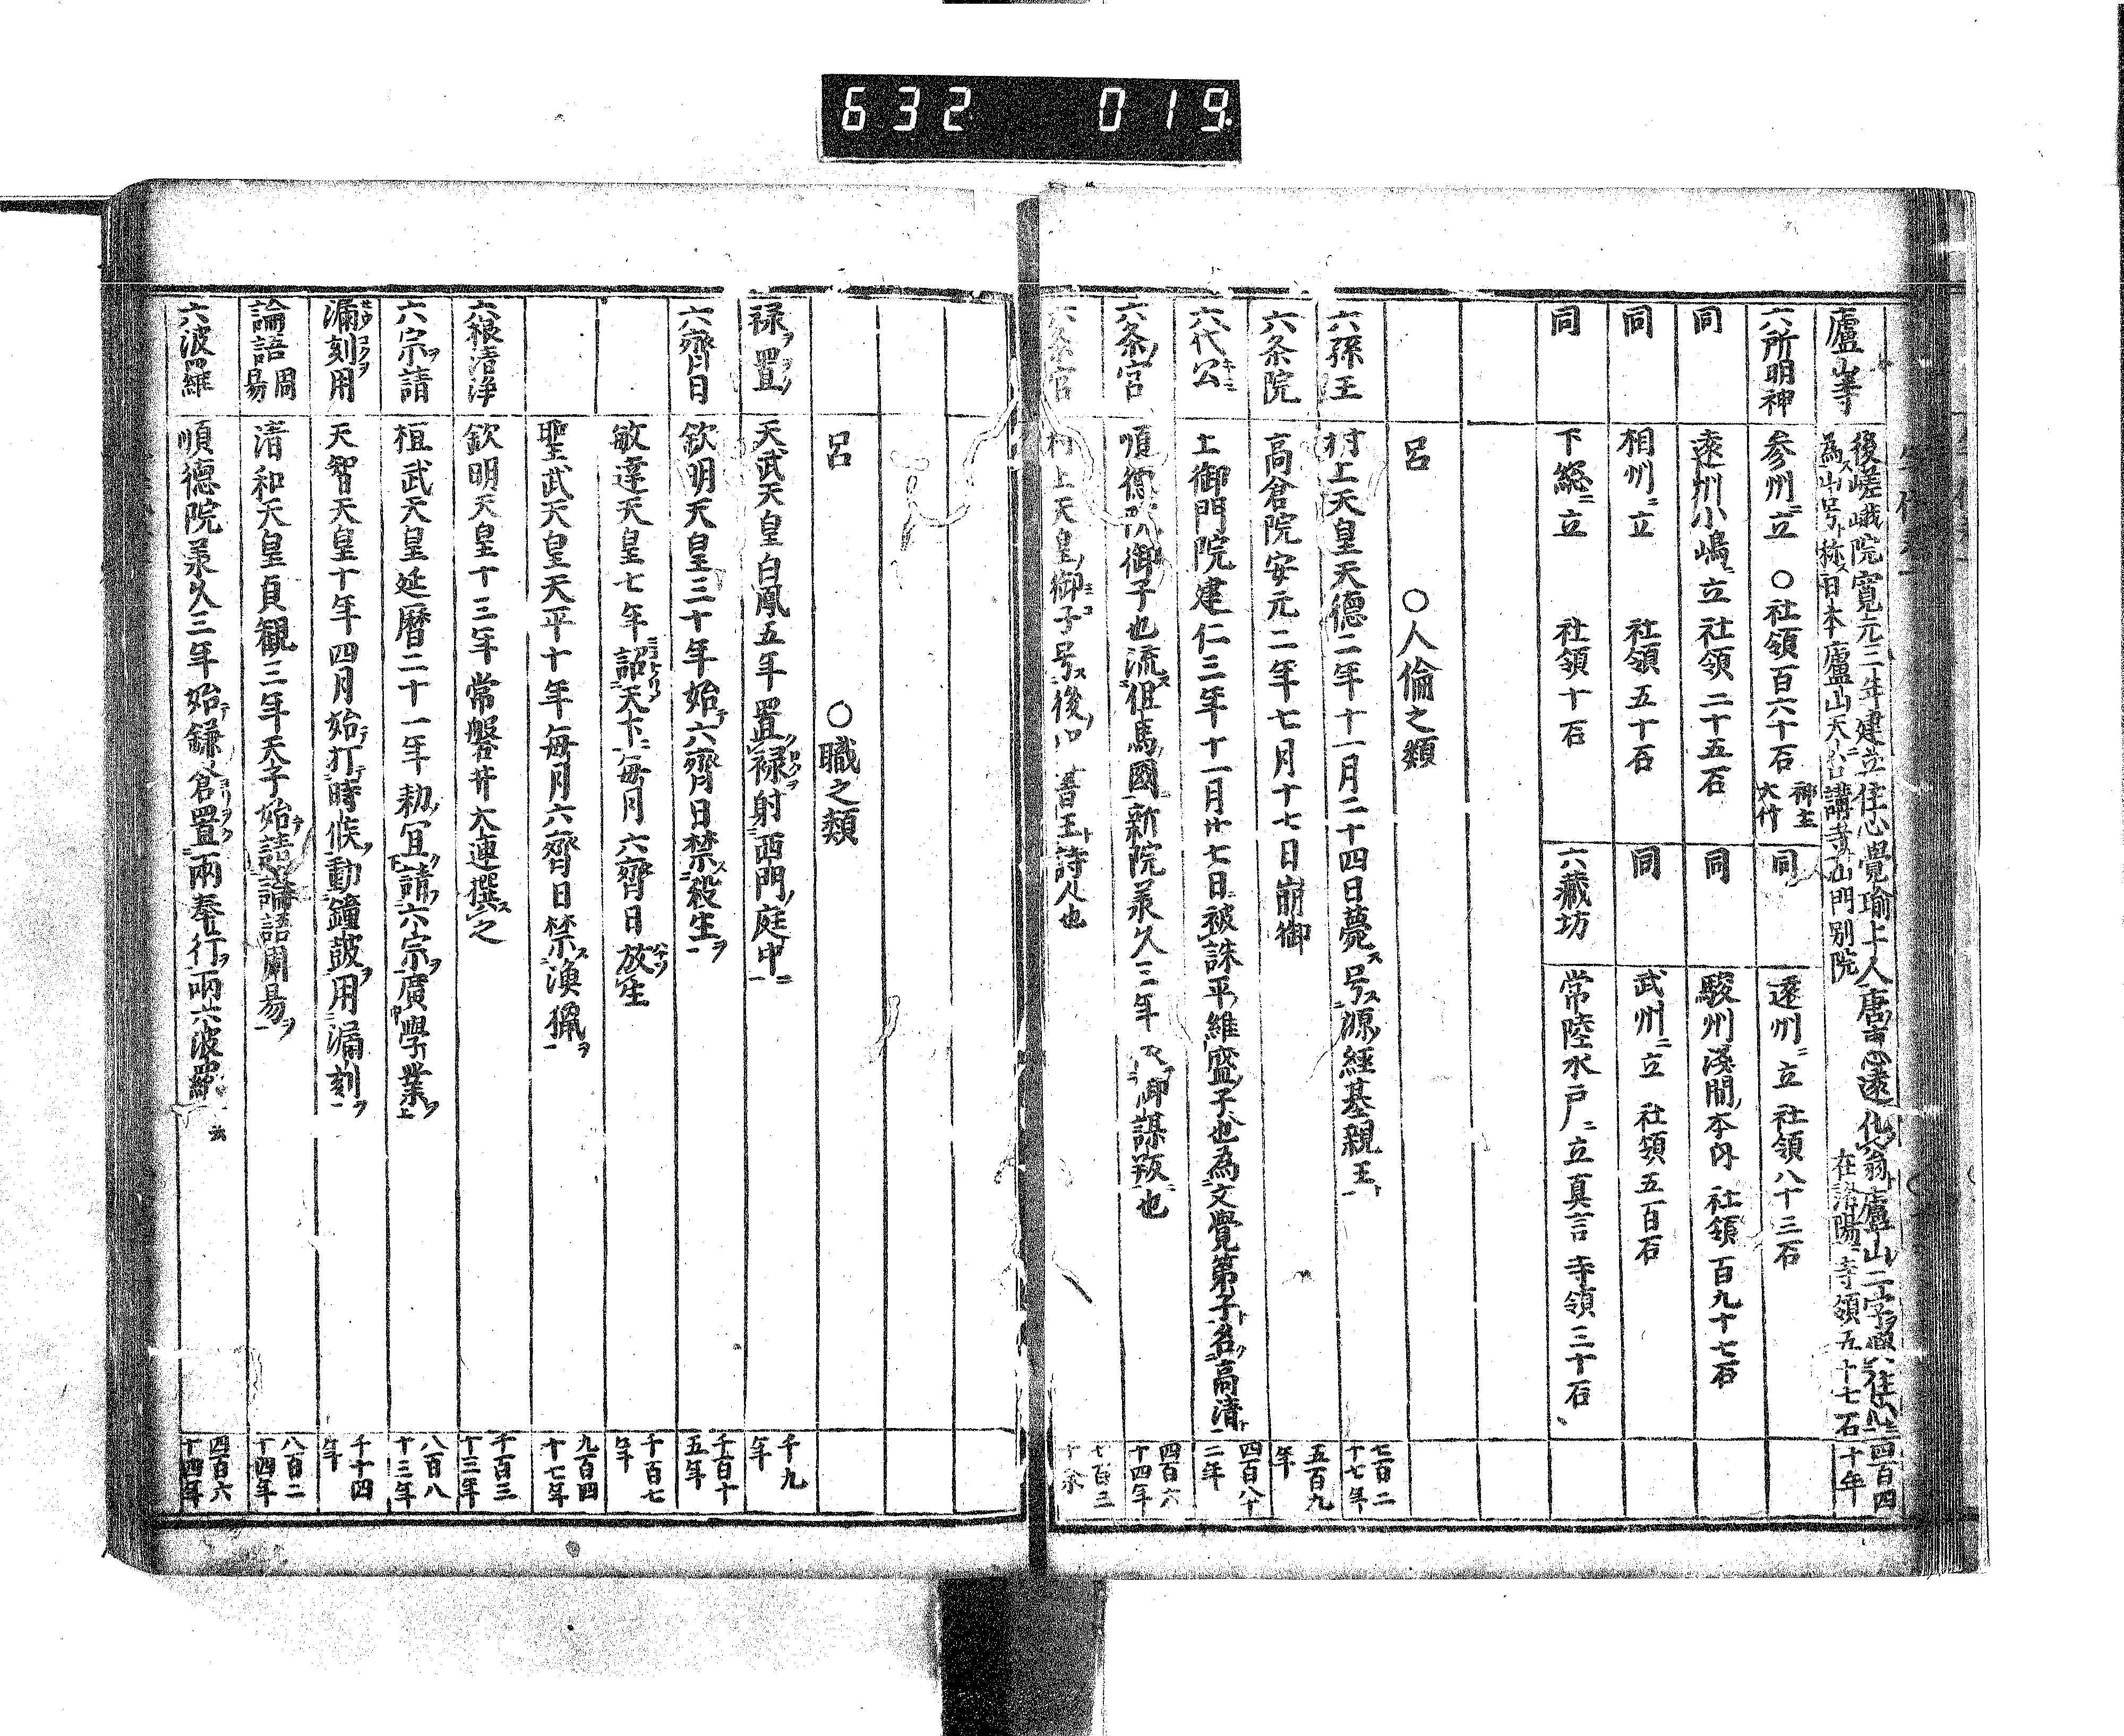 632 019
廬山寺
後嵯峨院寛元三年建立住心覺瑜上人唐慧遠化翁廬山二字與住心
為山号称日本廬山天台講寺山門別院 在洛陽 寺領五十七石
四百四十年
六所明神 参州ニ立 ○社領百六十石 神主大竹 同 遠州ニ立 社領八十三石
同 遠州小嶋立 社領二十五石 同 駿州淺間本内 社領百九十七石
同 相州ニ立 社領五十石 同 武州ニ立 社領五百石
同 下総ニ立 社領十石 六藏坊 常陸水戸ニ立真言 寺領三十石
呂 ○人倫之類
六孫王 村上天皇天德二年十一月二十四日薨ス号ス源經基親王ト 七百二十七年
六条院 高倉院安元二年七月十七日崩御 五百九年
六代公 土御門院建仁三年十一月廿七日被誅平維盛子也為文覺第子名高清ト 四百八十二年
六条宮 順德院御子也流ス但馬國新院承久三年 御謀叛也 四百六十四年
六条宮 村上天皇御子号ス後 書王ト詩人也 七百三十
呂 ○職之類
禄ヲ置 天武天皇白鳳五年置禄ヲ射西門庭中ニ 千九年
六齊日 欽明天皇三十年始テ六齊日禁ス殺生ヲ 千百十五年
敏達天皇七年詔天下ニ毎月六齊日放生 千百七年
聖武天皇天平十年毎月六齊日禁ス漁獵ヲ 九百四十七年
六根清浄 欽明天皇十三年常盤井大連撰ス之 千百三十三年
六宗ヲ請 桓武天皇延暦二十一年勅宣請六宗ヲ廣學業ヲ 八百八十三年
漏刻ヲ用 天智天皇十年四月始テ打時候ヲ動鐘皷ヲ用漏刻ヲ 千十四年
論語周易 清和天皇貞観三年天子始テ請論語周易ヲ 八百二十四年
六波羅 順德院承久三年始テ鎌倉ヨリ置兩奉行ヲ兩六波羅 云 四百六十四年